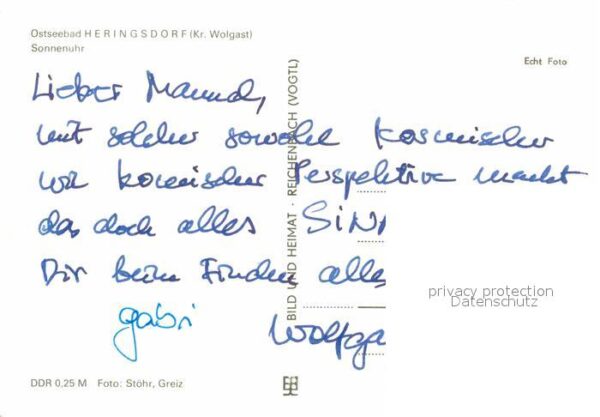 Ostseebad HERINGSDORF (Kr. Wolgast)
Sonnenuhr
Echt Foto
Lieber
mit solcher sowohl kosmischer
wie komischer Perspektive macht
das doch alles SIN
Dir beim Finden alles
gabi Wolfga
BILD UND HEIMAT · REICHENBACH (VOGTL)
privacy protection
Datenschutz
DDR 0,25 M Foto: Stöhr, Greiz